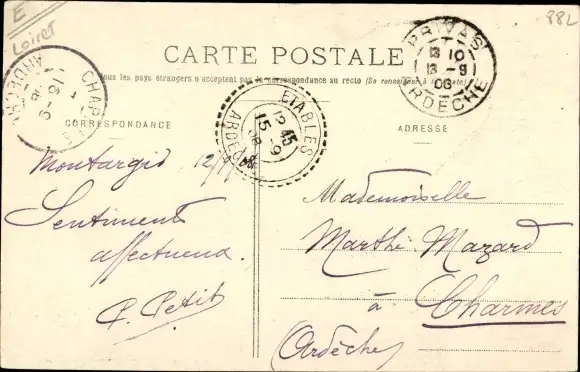 E
Loiret
88L
CARTE POSTALE
Tous les pays étrangers n'acceptent pas la correspondance au recto (Se renseigner à la Poste)
CORRESPONDANCE
ADRESSE
PRIVAS
13 10
13 -9
08
ARDECHE
ETABLES
12 45
15 -9
08
ARDECHE
CHAR
ARDECHE
Montargis 12/9/08
Sentiments
affectueux.
P. Petit
Mademoiselle
Marthe Mazard
à Charmes
(Ardèche)